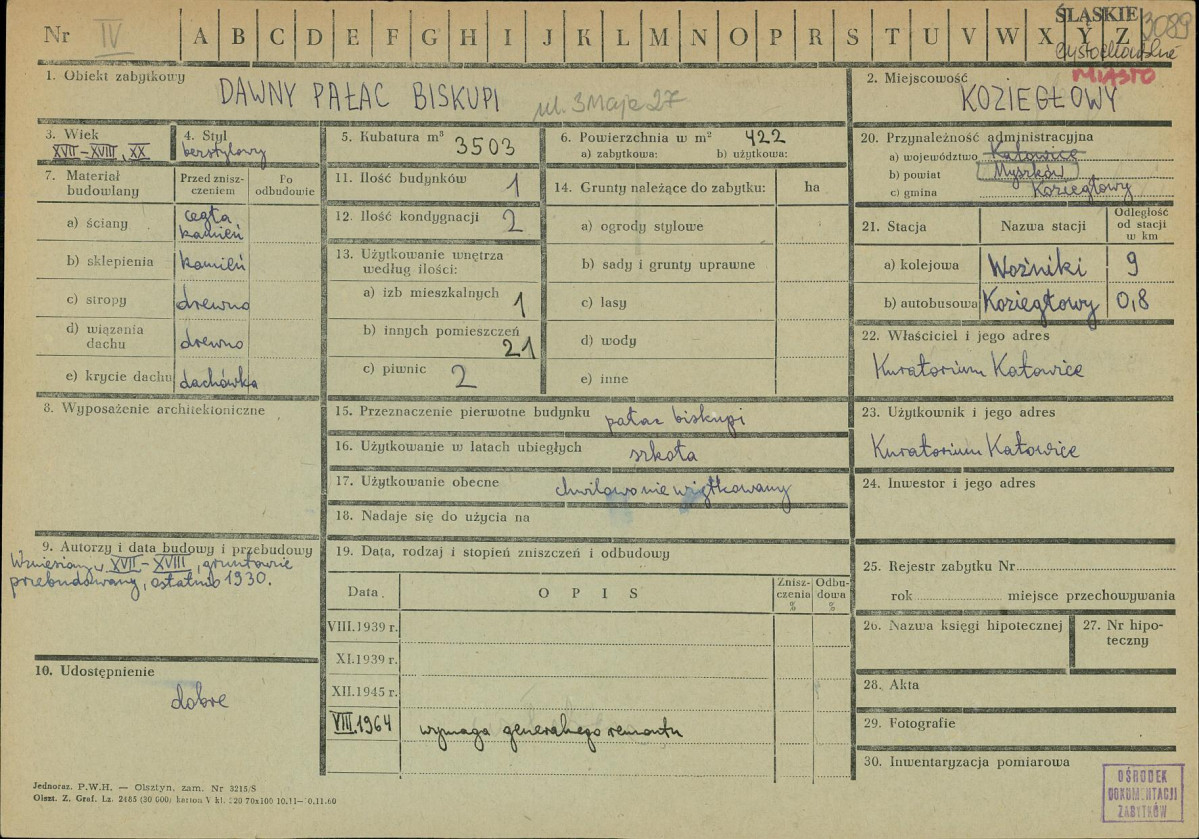 Nr IV A B C D E F G H I J K L M N O P R S T U V W X Y Z
ŚLĄSKIE 3089
MIASTO
1. Obiekt zabytkowy
DAWNY PAŁAC BISKUPI ul. 3 Maja 27
2. Miejscowość
KOZIEGŁOWY
3. Wiek
XVII–XVIII, XX
4. Styl
bezstylowy
5. Kubatura m³ 3503
6. Powierzchnia w m² 422
a) zabytkowa: b) użytkowa:
7. Materiał budowlany
Przed zniszczeniem
Po odbudowie
a) ściany cegła kamień
b) sklepienia kamień
c) stropy drewno
d) wiązania dachu drewno
e) krycie dachu dachówka
8. Wyposażenie architektoniczne
9. Autorzy i data budowy i przebudowy
Wzniesiony w XVII–XVIII, gruntownie
przebudowany, ostatnio 1930.
10. Udostępnienie
dobre
11. Ilość budynków 1
12. Ilość kondygnacji 2
13. Użytkowanie wnętrza
według ilości:
a) izb mieszkalnych 1
b) innych pomieszczeń 21
c) piwnic 2
14. Grunty należące do zabytku: ha
a) ogrody stylowe
b) sady i grunty uprawne
c) lasy
d) wody
e) inne
15. Przeznaczenie pierwotne budynku pałac biskupi
16. Użytkowanie w latach ubiegłych szkoła
17. Użytkowanie obecne chwilowo nie użytkowany
18. Nadaje się do użycia na
19. Data, rodzaj i stopień zniszczeń i odbudowy
Data OPIS Zniszczenia % Odbudowa %
VIII.1939 r.
XI.1939 r.
XII.1945 r.
VIII.1964 wymaga generalnego remontu
20. Przynależność administracyjna
a) województwo Katowice
b) powiat Myszków
c) gmina Koziegłowy
21. Stacja Nazwa stacji Odległość od stacji w km
a) kolejowa Woźniki 9
b) autobusowa Koziegłowy 0,8
22. Właściciel i jego adres
Kuratorium Katowice
23. Użytkownik i jego adres
Kuratorium Katowice
24. Inwestor i jego adres
25. Rejestr zabytku Nr
rok miejsce przechowywania
26. Nazwa księgi hipotecznej
27. Nr hipoteczny
28. Akta
29. Fotografie
30. Inwentaryzacja pomiarowa
OŚRODEK
DOKUMENTACJI
ZABYTKÓW
Jednoraz. P.W.H. — Olsztyn, zam. Nr 3215/S
Olszt. Z. Graf. Lz. 2485 (30 000) karton V kl. 220 70x100